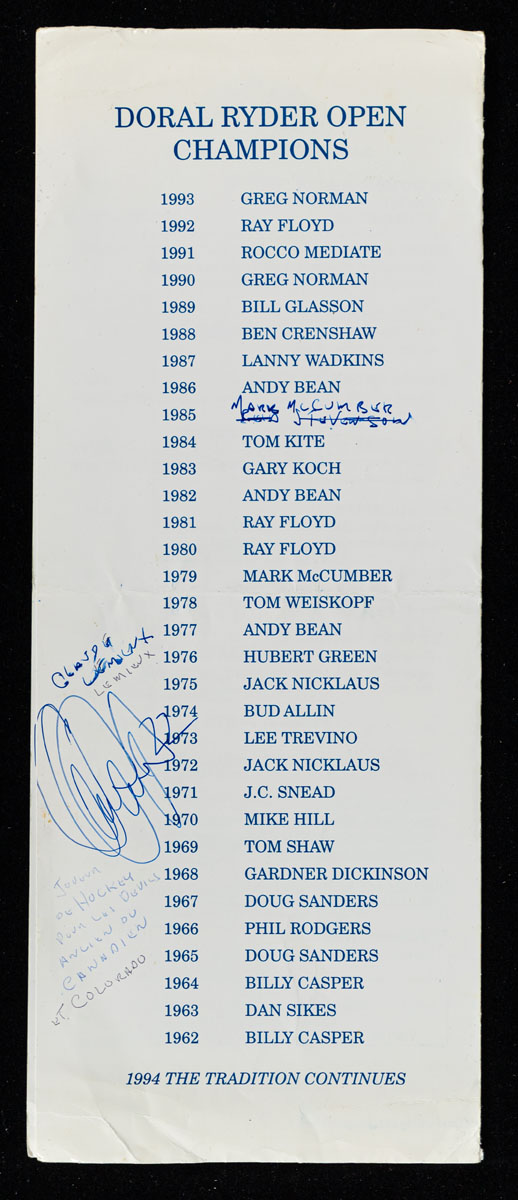 DORAL RYDER OPEN
CHAMPIONS
1993 GREG NORMAN
1992 RAY FLOYD
1991 ROCCO MEDIATE
1990 GREG NORMAN
1989 BILL GLASSON
1988 BEN CRENSHAW
1987 LANNY WADKINS
1986 ANDY BEAN
MARK McCUMBER
1985
1984 TOM KITE
1983 GARY KOCH
1982 ANDY BEAN
1981 RAY FLOYD
1980 RAY FLOYD
1979 MARK McCUMBER
1978 TOM WEISKOPF
1977 ANDY BEAN
1976 HUBERT GREEN
1975 JACK NICKLAUS
1974 BUD ALLIN
1973 LEE TREVINO
1972 JACK NICKLAUS
1971 J.C. SNEAD
1970 MIKE HILL
1969 TOM SHAW
1968 GARDNER DICKINSON
1967 DOUG SANDERS
1966 PHIL RODGERS
1965 DOUG SANDERS
1964 BILLY CASPER
1963 DAN SIKES
1962 BILLY CASPER
1994 THE TRADITION CONTINUES
CLAUDE
LEMIEUX
LEMIEUX
DE HOCKEY
POUR LES DEVILS
ANCIEN DU
CANADIEN
ET COLORADO